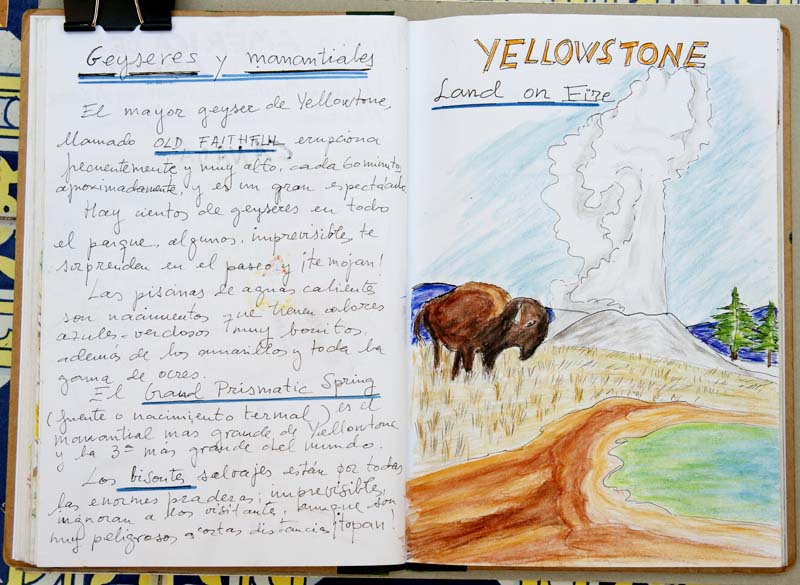 Geyseres y manantiales
El mayor geyser de Yellowtone,
llamado OLD FAITHFUL erupciona
frecuentemente y muy alto, cada 60 minutos
aproximadamente, y es un gran espectáculo
Hay cientos de geyseres en todo
el parque, algunos, imprevisibles, te
sorprenden en el paseo y ¡te mojan!
Las piscinas de aguas caliente
son nacimientos que tienen colores
azules-verdosos muy bonitos,
ademas de los amarillos y toda la
gama de ocres.
El Grand Prismatic Spring
(fuente o nacimiento termal) es el
manantial mas grande de Yellowtone
y la 3ª mas grande del mundo.
Los bisontes salvajes están por todas
las enormes praderas; imprevisibles,
a los visitantes, aunque son
muy peligrosos a cortas distancias ¡topan!
YELLOWSTONE
Land on Fire